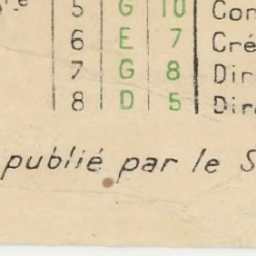 5 G 10 Con
6 E 7 Cré
7 G 8 Dir
8 D 5 Dir
publié par le S